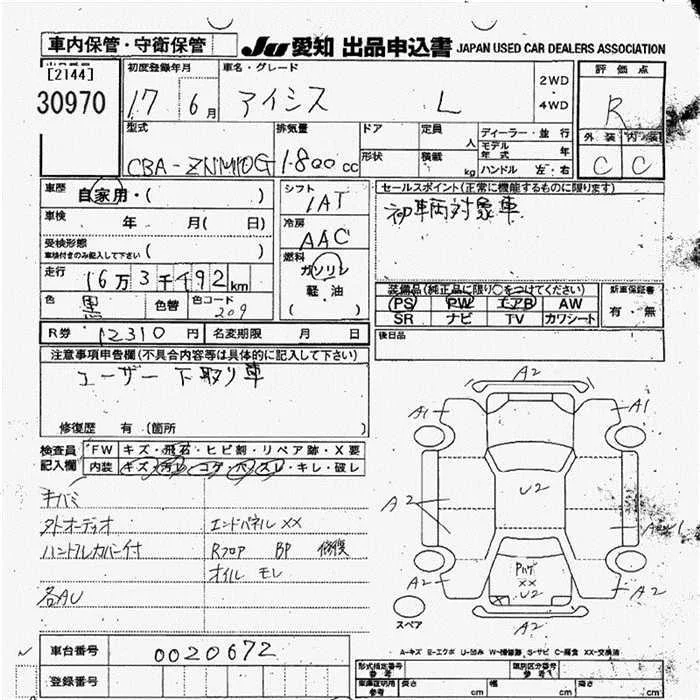 車内保管・守衛保管 JU 愛知 出品申込書 JAPAN USED CAR DEALERS ASSOCIATION
[2144] 30970
初度登録年月 車名・グレード 評価点
17 6月 アイシス L 2WD 4WD R
外装 内装
C C
型式 排気量 ドア 定員 人 ディーラー・並行
CBA-ZNM10G 1.800cc 形状 積載 kg モデル年式 年
ハンドル 左・右
車歴 自家用・( ) シフト IAT セールスポイント(正常に機能するものに限ります)
車検 年 月( 日) 冷房 AAC 初車両対象車
受検形態 車検付きのみ記入して下さい ( ) 燃料 ガソリン
走行 16万3千492km 軽・油
( )
色 黒 色替 色コード 209
装備品(純正品に限り〇をつけてください) 新車保証書
PS PW エアB AW 有・無
SR ナビ TV カワシート
R券 12310円 名変期限 月 日 後日品
注意事項申告欄(不具合内容等は具体的に記入して下さい)
ユーザー下取り車
修復歴 有 (箇所 )
検査員記入欄 FW キズ・飛石・ヒビ割・リペア跡・X要
内装 キズ・汚レ・コゲ・ハズレ・キレ・破レ
キバミ
外オーディオ エンドパネル XX
ハンドルカバー付 Rフロア BP 修復
オイル モレ
各AU
A2
A1 A1
A2 U2
A2 A2
Pハゲ
XX
U2
A2
スペア
A-キズ E-エクボ U-凹み W-補修跡 S-サビ C-腐食 XX-交換済
車台番号 0020672
登録番号
形式指定番号 参考 類別区分番号
車庫証明用 参考 長さ cm 幅 cm 高さ cm